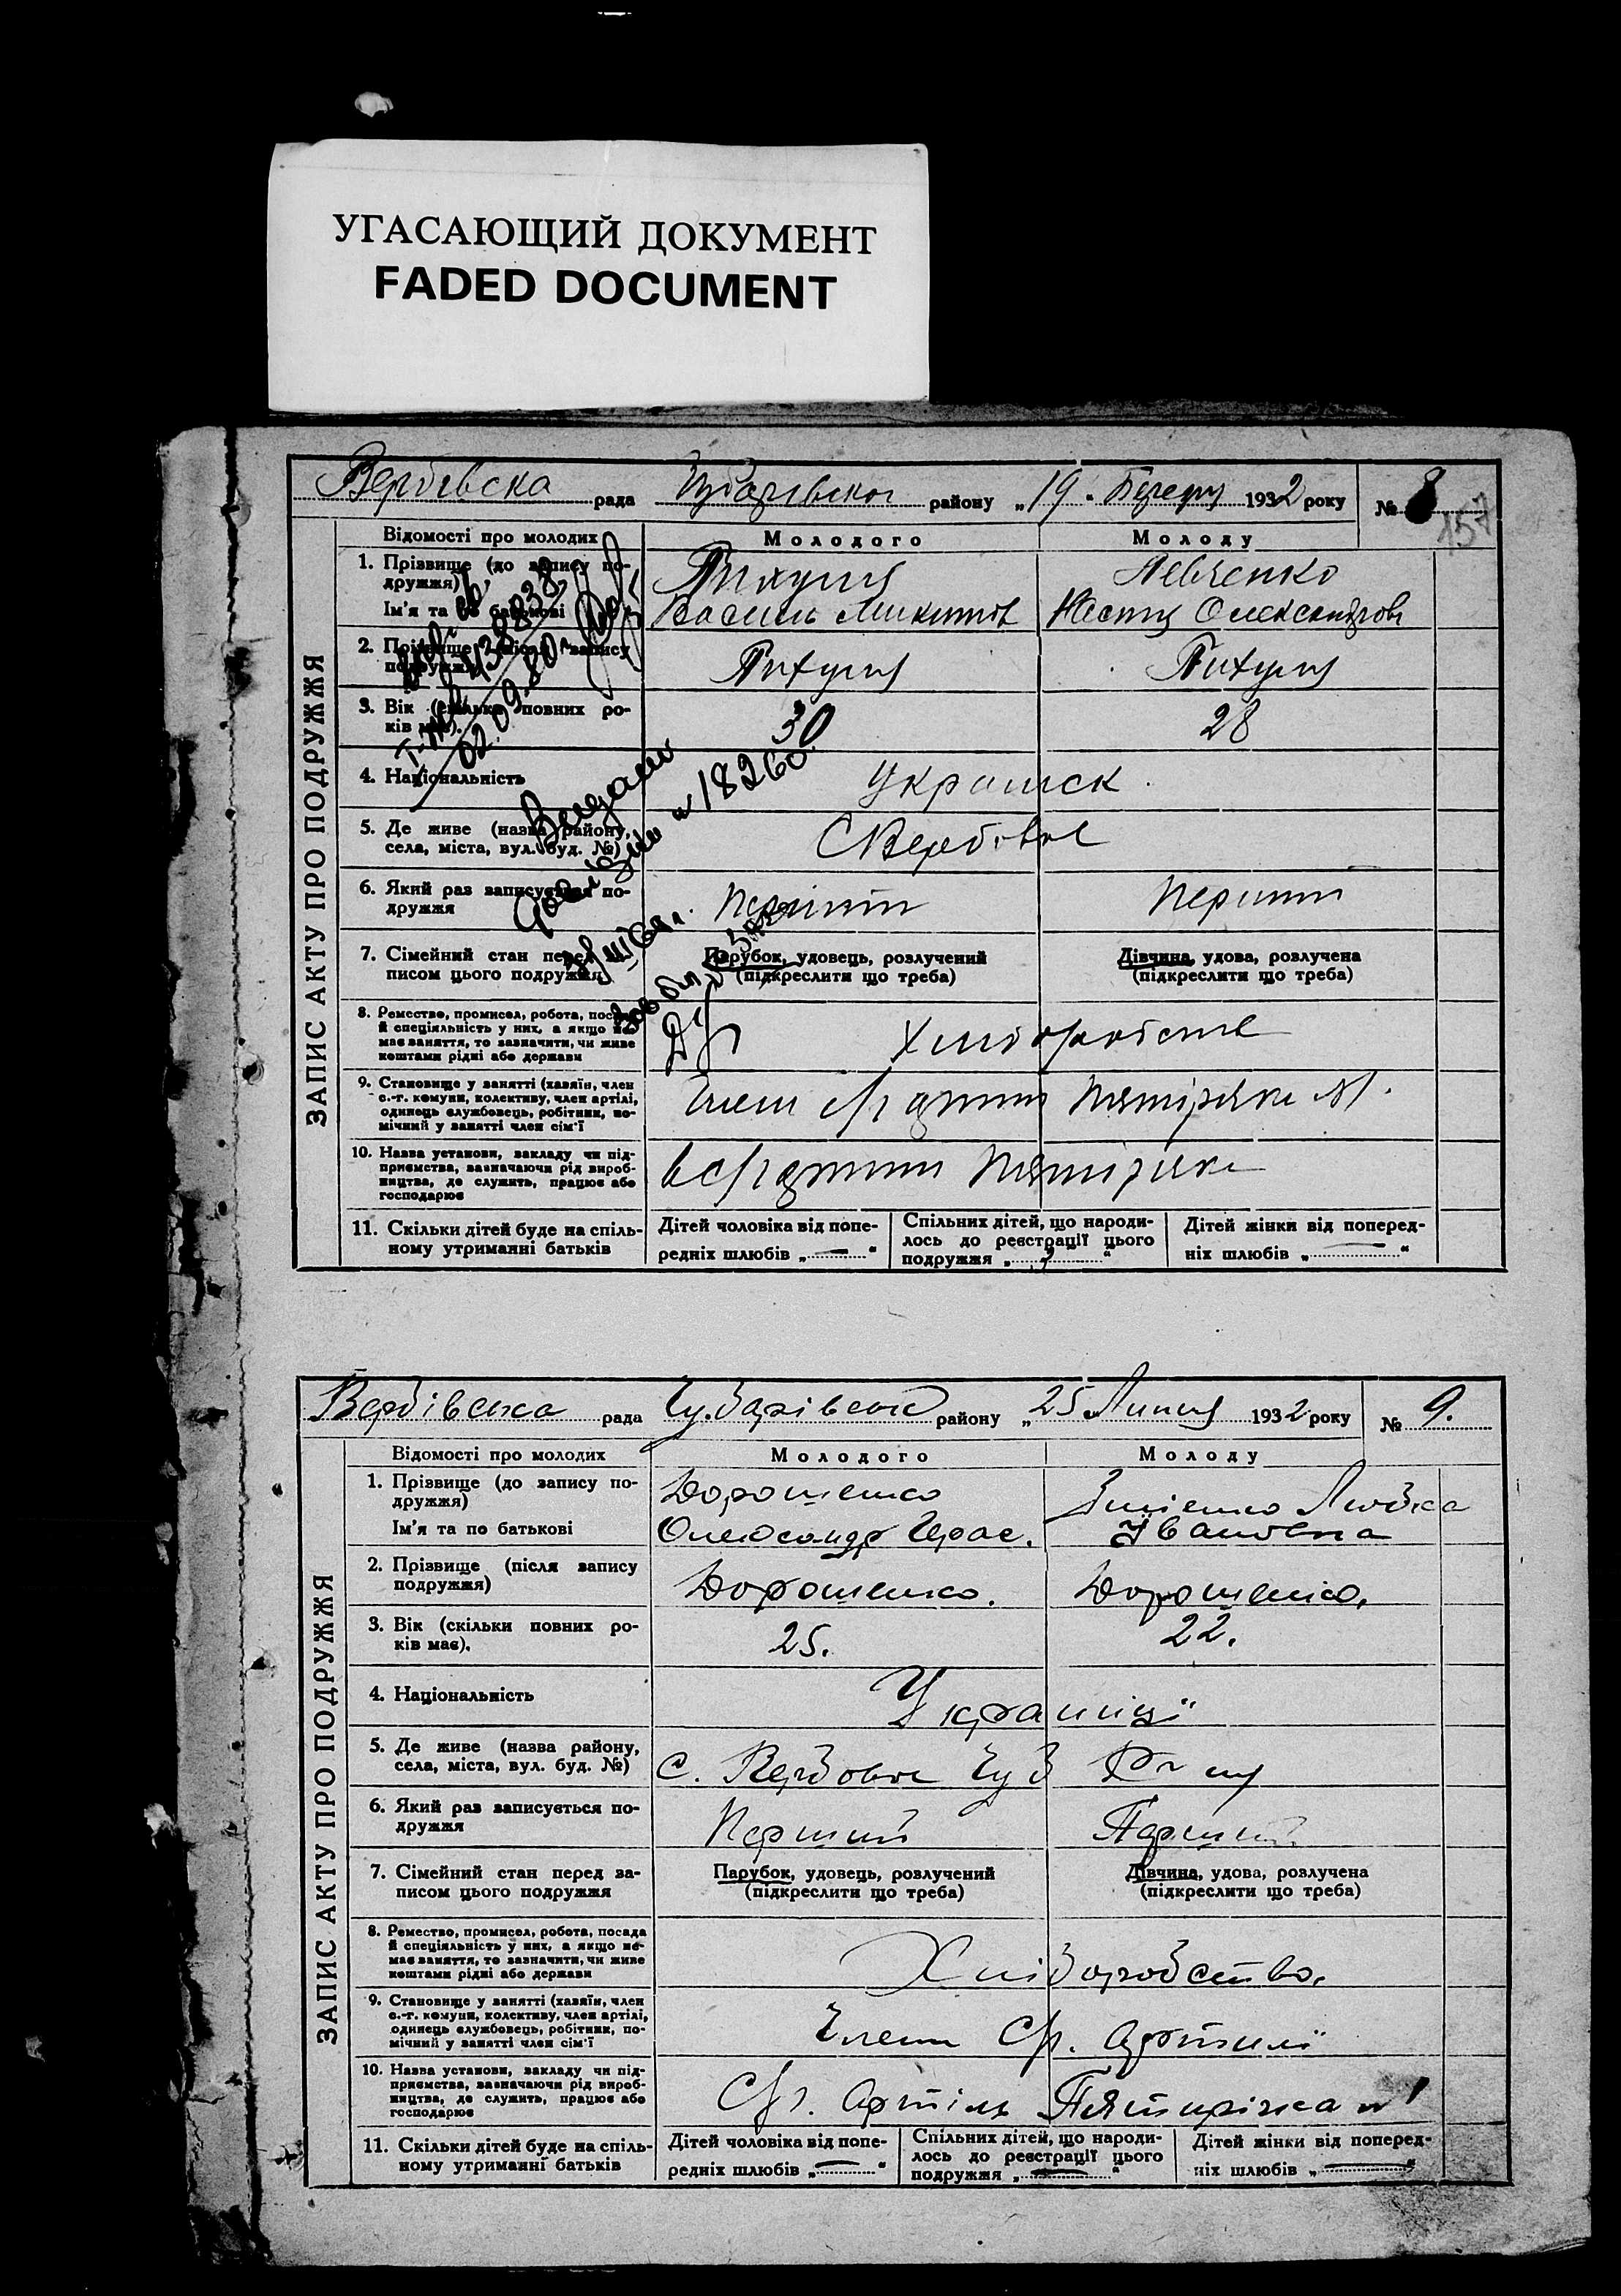 УГАСАЮЩИЙ ДОКУМЕНТ
FADED DOCUMENT
Вербівська рада району „19 " 1932 року № 8
157
ЗАПИС АКТУ ПРО ПОДРУЖЖЯ
Відомості про молодих
Молодого
Молоду
1. Прізвище (до запису по-
дружжя)
Ім'я та по батькові
Левченко
Василь Микитов
Настя Олександрові
2. Прізвище (після запису
подружжя)
3. Вік (скільки повних ро-
ків має).
30
28
4. Національність
5. Де живе (назва району,
села, міста, вул. буд. №)
С Вербове
6. Який раз записується по-
дружжя
Перший
Перший
7. Сімейний стан перед за-
писом цього подружжя
Парубок, удовець, розлучений
(підкреслити що треба)
Дівчина, удова, розлучена
(підкреслити що треба)
8. Ремество, промисел, робота, посада
й спеціяльність у них, а якщо не-
має заняття, то зазначити, чи живе
коштами рідні або держави
9. Становище у занятті (хазяїн, член
с.-г. комуни, колективу, член артілі,
одинець службовець, робітник, по-
мічний у занятті член сім'ї
10. Назва установи, закладу чи під-
приємства, зазначаючи рід вироб-
ництва, де служить, працює або
господарює
11. Скільки дітей буде на спіль-
ному утриманні батьків
Дітей чоловіка від попе-
редніх шлюбів „ — "
Спільних дітей, що народи-
лось до реєстрації цього
подружжя „ "
Дітей жінки від поперед-
ніх шлюбів „ — "
02.09.80
№ 18260
Вербівська рада Чубарівського району „25 " Липня 1932 року № 9.
ЗАПИС АКТУ ПРО ПОДРУЖЖЯ
Відомості про молодих
Молодого
Молоду
1. Прізвище (до запису по-
дружжя)
Ім'я та по батькові
Дорошенко
Олександр Герас.
Івановна
2. Прізвище (після запису
подружжя)
Дорошенко.
Дорошенко.
3. Вік (скільки повних ро-
ків має).
25.
22.
4. Національність
Українці
5. Де живе (назва району,
села, міста, вул. буд. №)
С. Вербове Чуб
6. Який раз записується по-
дружжя
Перший
Перший
7. Сімейний стан перед за-
писом цього подружжя
Парубок, удовець, розлучений
(підкреслити що треба)
Дівчина, удова, розлучена
(підкреслити що треба)
8. Ремество, промисел, робота, посада
й спеціяльність у них, а якщо не-
має заняття, то зазначити, чи живе
коштами рідні або держави
Хліборобство.
9. Становище у занятті (хазяїн, член
с.-г. комуни, колективу, член артілі,
одинець службовець, робітник, по-
мічний у занятті член сім'ї
Члени С/г. артилі
10. Назва установи, закладу чи під-
приємства, зазначаючи рід вироб-
ництва, де служить, працює або
господарює
С/г. Артіль Пятирічка № 1
11. Скільки дітей буде на спіль-
ному утриманні батьків
Дітей чоловіка від попе-
редніх шлюбів „ — "
Спільних дітей, що народи-
лось до реєстрації цього
подружжя „ — "
Дітей жінки від поперед-
ніх шлюбів „ — "